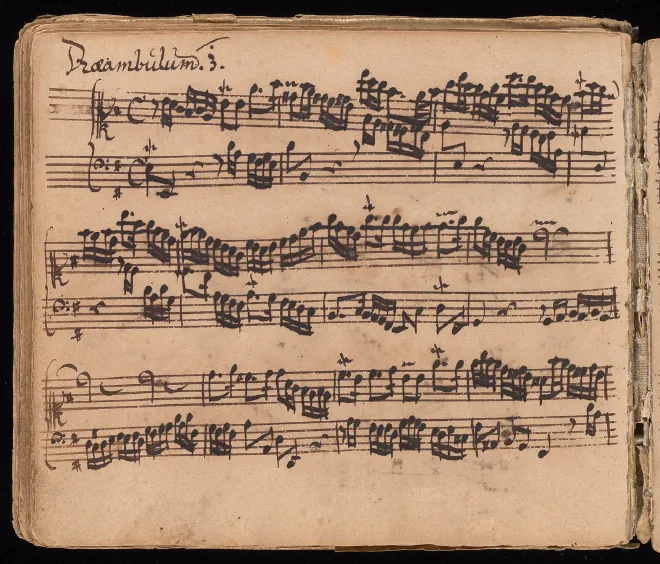 Præambulum. 3.